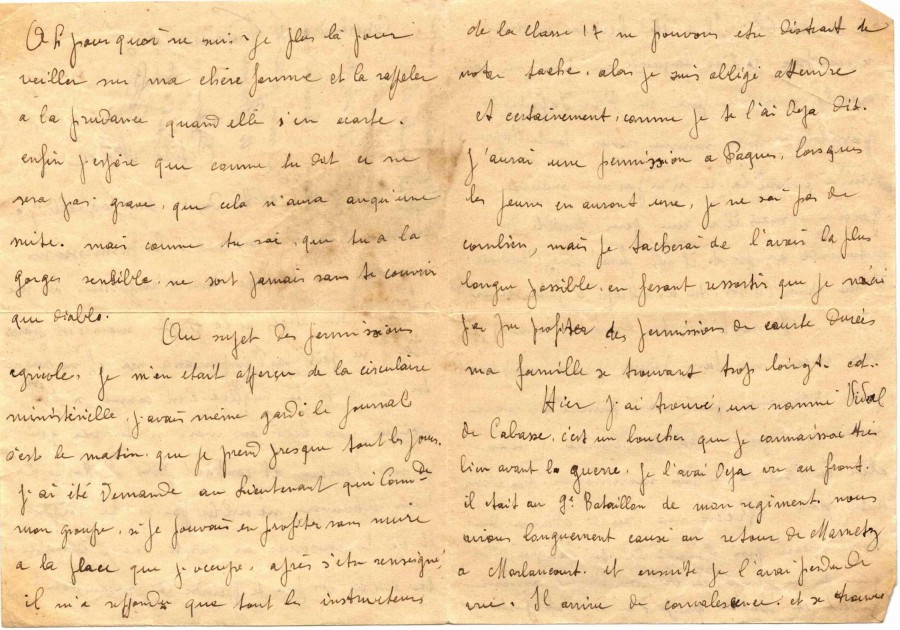 Ah pourquoi ne suis-je plus là pour
veiller sur ma chère femme et la rappeler
a la prudance quand elle s'en ecarte.
enfin j'espère que comme tu dit ce ne
sera pas grave, que cela n'aura auqu'une
suite. mais comme tu sai, que tu a la
gorges sensible, ne sort jamais sans te couvrir
que diable.
Au sujet des permissions
agricoles, je m'en était apperçu de la circulaire
ministérielle, j'avais même gardé le journal
s'est le matin, que je prend presque tout les jours.
J'ai été demandé au Lieutenant qui Comdt
mon groupe, si je pouvais en profiter sans nuire
a la place que j'occupe, après s'etre renseigné,
il m'a repondu que tout les instructeurs
de la classe 17 ne pouvons etre distrait de
notre tache. alors je suis obligé attendre
et certainement, comme je te l'ai deja dit.
j'aurai une permission a Paques, lorsques
les jeunes en auront une, je ne sai pas de
combien, mais je tacherai de l'avoir la plus
longue possible, en fesant ressortir que je n'ai
pas pu profiter des permissions de courte durées
ma famille se trouvant trop loingt. ect..
Hier j'ai trouvé, un nommé Vidal
de Cabasse, c'est un boucher que je connaissai très
bien avant la guerre. Je l'avai deja vu au front.
il était au 9e Bataillon de mon regiment. nous
avions longuement causé au retour de Mametz
a Morlancourt. et ensuite je l'avai perdu de
vue. Il arrive de convalescence. et se trouve